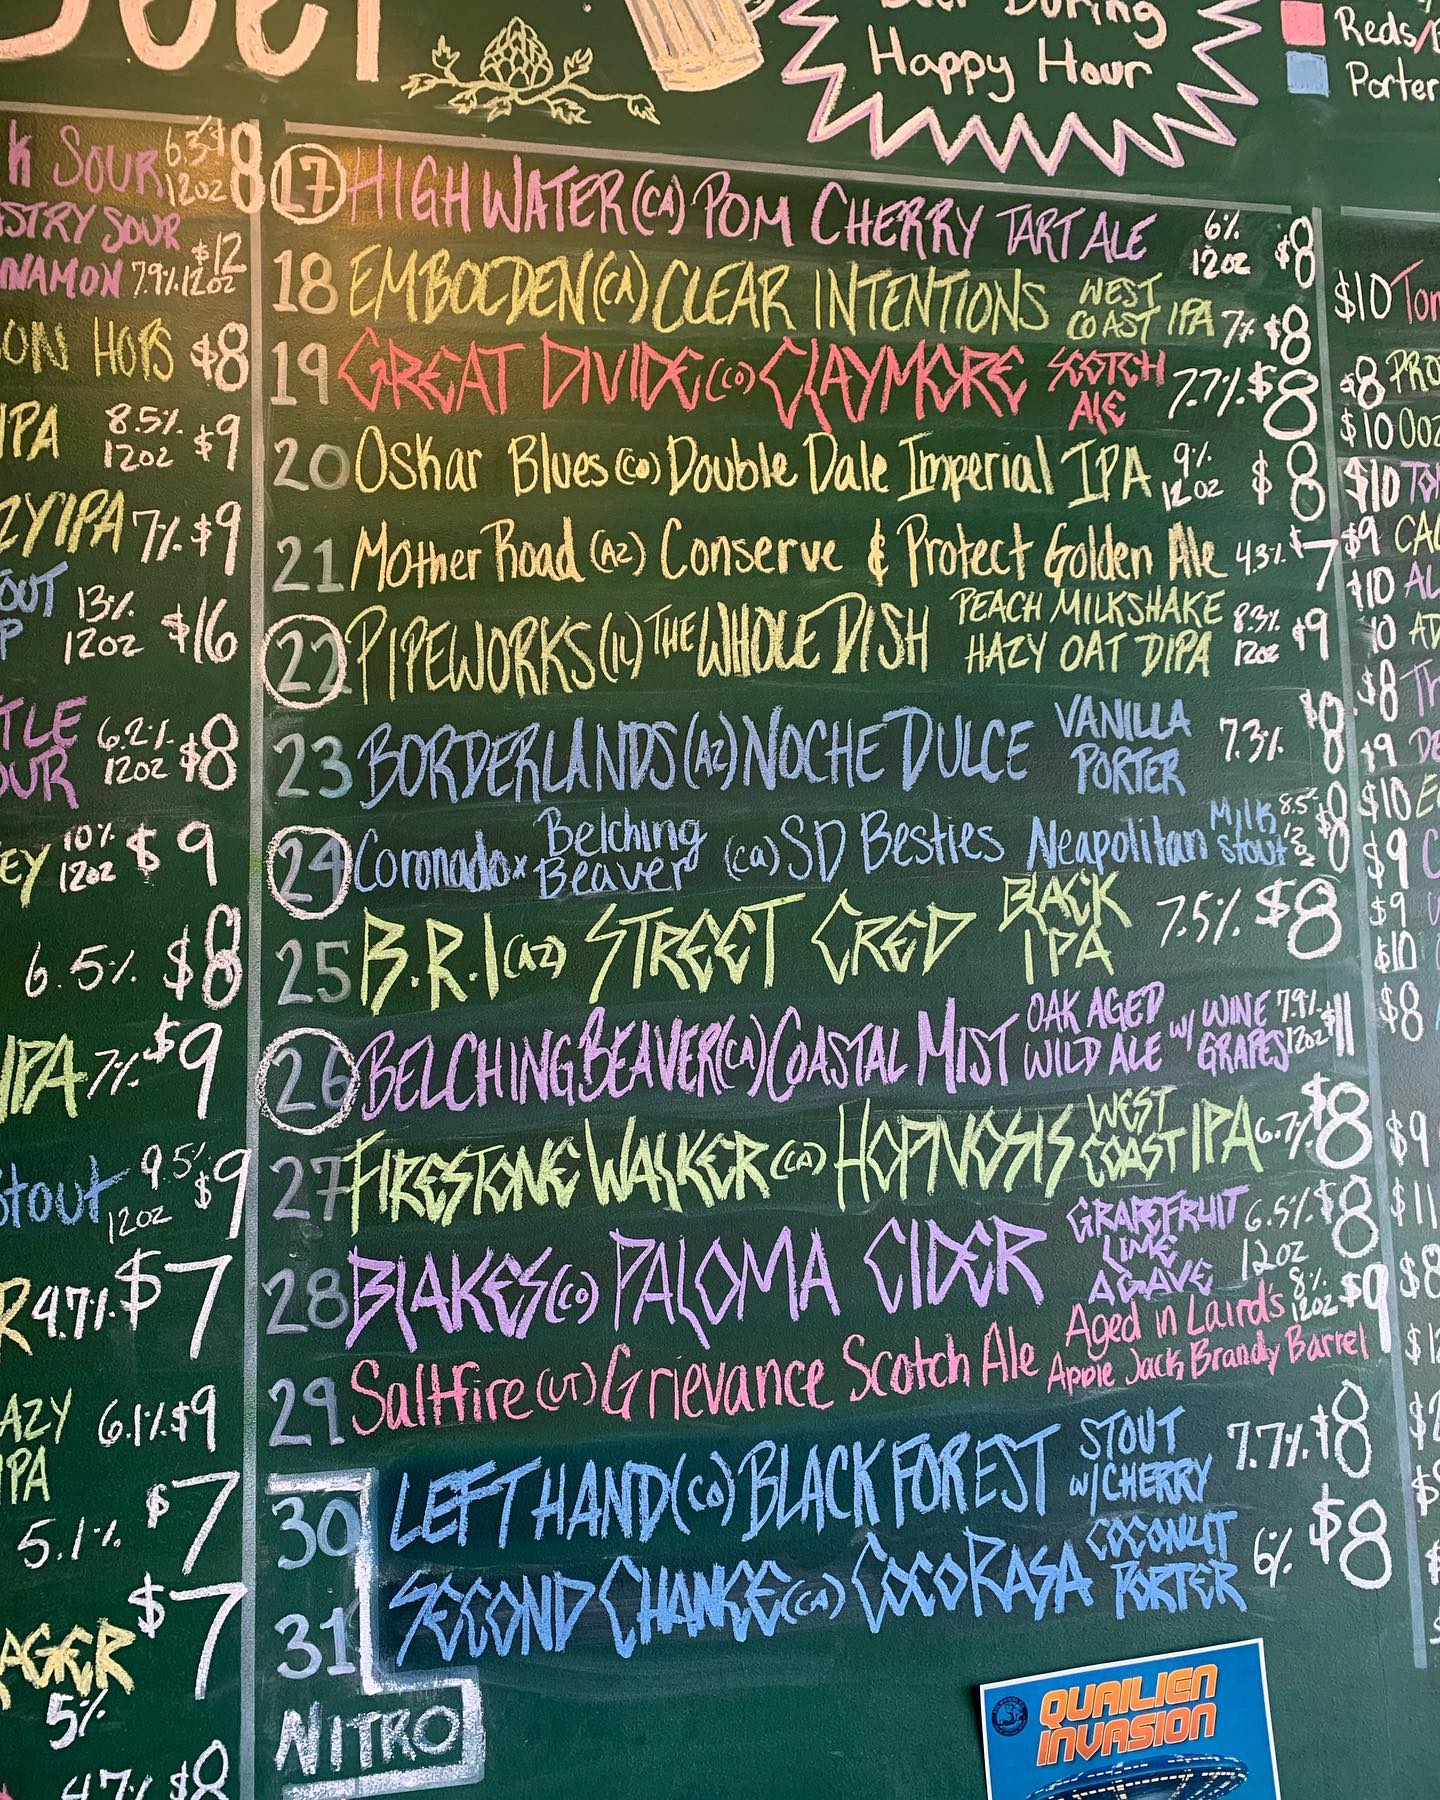 Beer
Beer During
Happy Hour
Reds/
Porter
k SOUR 6.3% $8
12oz
ASTRY SOUR
NNAMON 7.9% 12oz $12
ON HOPS $8
IPA 8.5% 12oz $9
ZY IPA 7% $9
OUT 13%
P 12oz $16
TLE 6.2%
OUR 12oz $8
EY 10% 12oz $9
6.5% $8
IPA 7% $9
Stout 9.5% 12oz $9
R 4.7% $7
AZY 6.1% $9
IPA
5.1% $7
AGER $7
5%
4.7% $8
17 HIGH WATER (CA) POM CHERRY TART ALE 6% 12oz $8
18 EMBOCDEN (CA) CLEAR INTENTIONS WEST COAST IPA 7% $8
19 GREAT DIVIDE (CO) CLAYMORE SCOTCH ALE 7.7% $8
20 Oskar Blues (CO) Double Dale Imperial IPA 9% 12oz $8
21 Mother Road (AZ) Conserve & Protect Golden Ale 4.3% $7
22 PIPEWORKS (IL) THE WHOLE DISH PEACH MILKSHAKE HAZY OAT DIPA 8.3% 12oz $9
23 BORDERLANDS (AZ) NOCHE DULCE VANILLA PORTER 7.3% $8
24 Coronado x Belching Beaver (CA) SD Besties Neapolitan Milk Stout 8.5% 12oz $8
25 B.R.I (AZ) STREET CRED BLACK IPA 7.5% $8
26 BELCHING BEAVER (CA) COASTAL MIST OAK AGED WILD ALE w/ WINE GRAPES 7.9% 12oz $11
27 FIRESTONE WALKER (CA) HOPNOSIS WEST COAST IPA 6.7% $8
28 BLAKES (CO) PALOMA CIDER GRAPEFRUIT LIME AGAVE 6.5% 12oz $8
29 SaltFire (UT) Grievance Scotch Ale Aged in Laird's Apple Jack Brandy Barrel 8% 12oz $9
30 LEFT HAND (CO) BLACK FOREST STOUT w/ CHERRY 7.7% $8
31 SECOND CHANCE (CA) COCORASA COCONUT PORTER 6% $8
NITRO
QUAILIEN
INVASION
$10 Tor
$8 PRO
$10 OOZ
$10 TO
$9 CA
$10 AL
10 AD
$8 Th
$9 DE
$10
$9
$9
$10
$8
$9
$11
$8